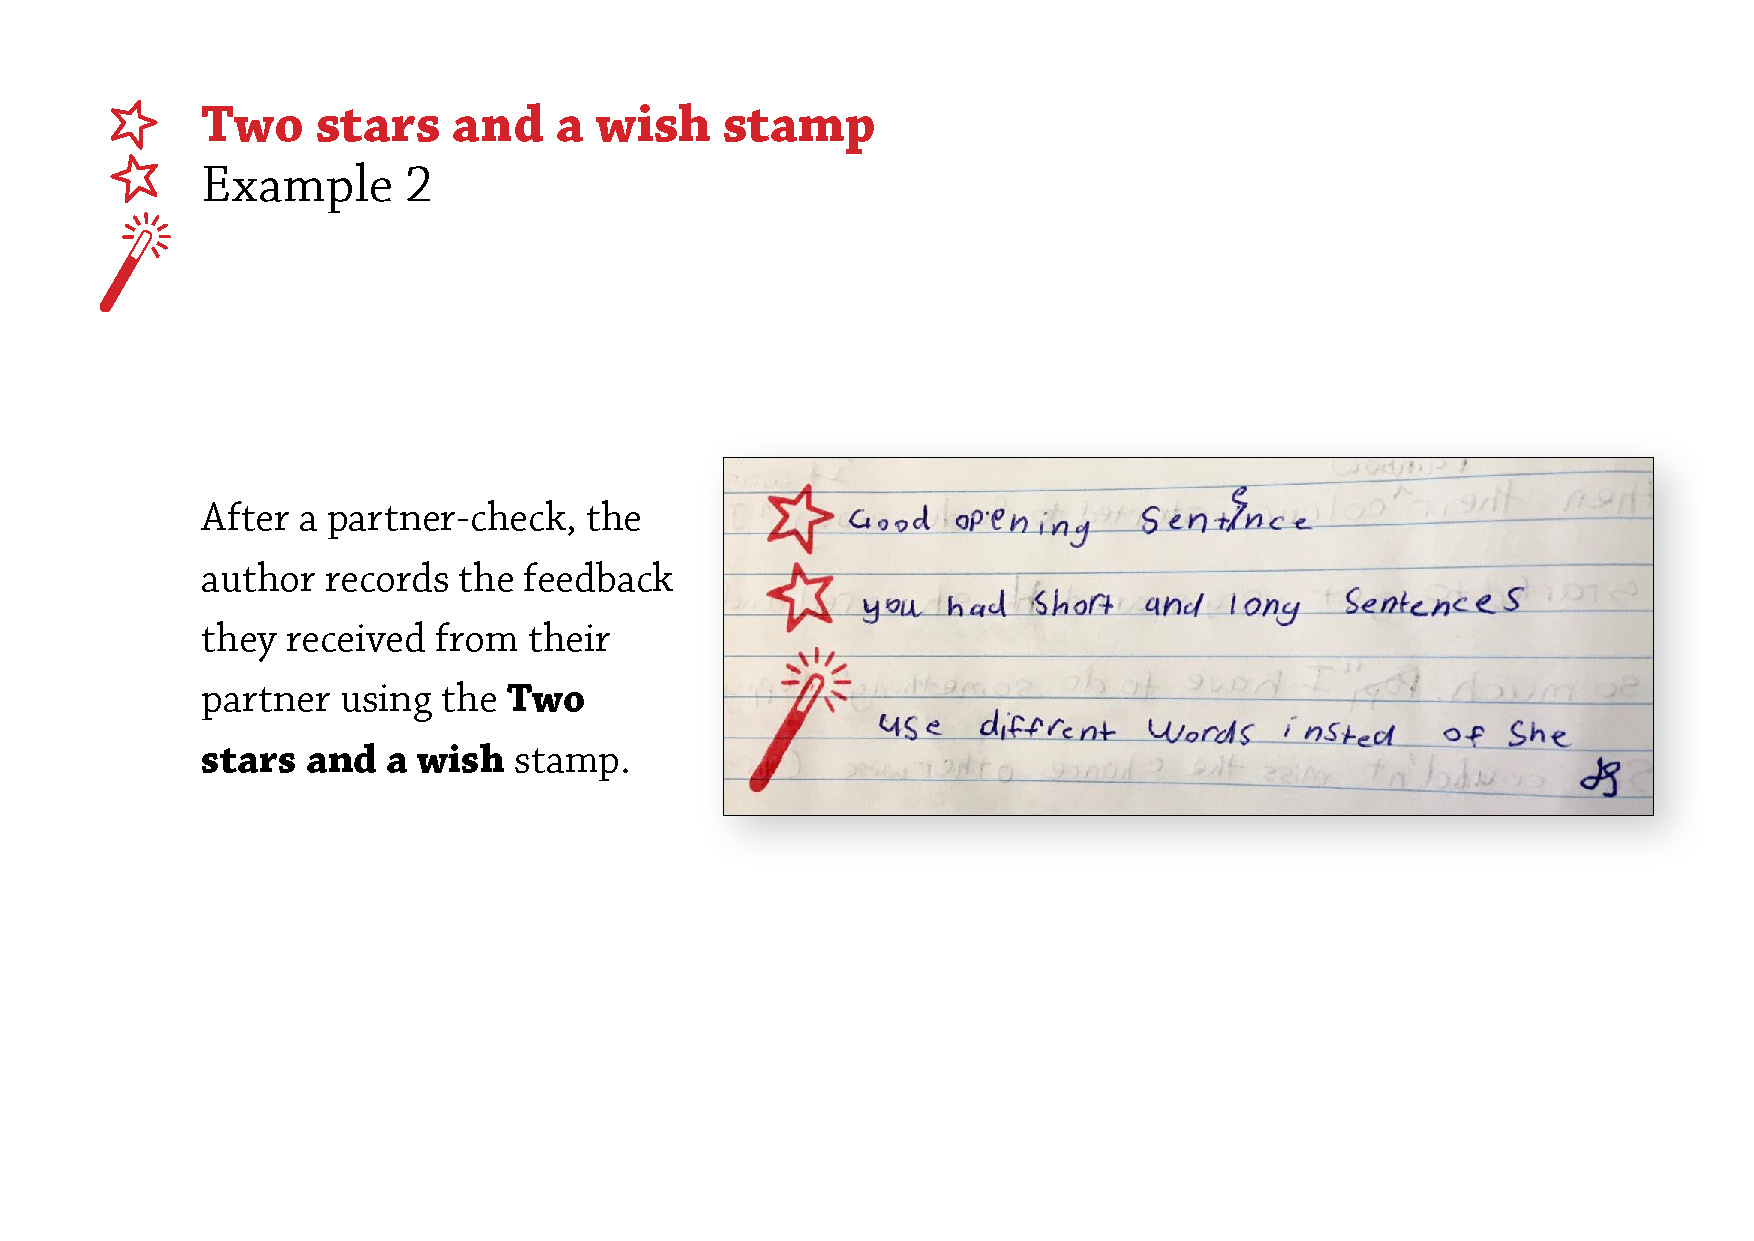 Two stars and a wish stamp
Example 2
After a partner-check, the
author records the feedback
they received from their
partner using the Two
stars and a wish stamp.
Good opening Sentence
you had Short and long Sentences
use diffrent words insted of She